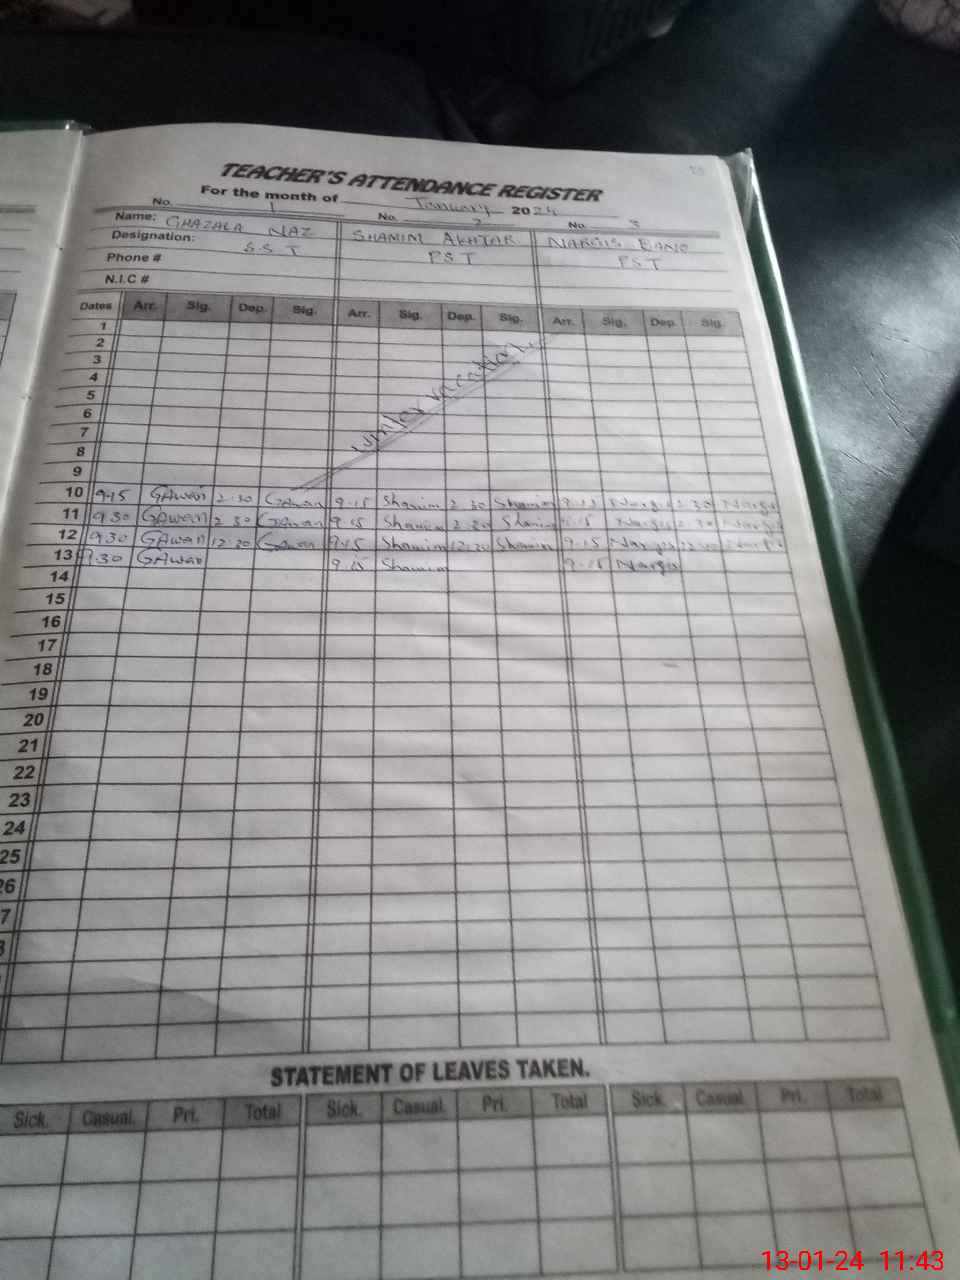 TEACHER'S ATTENDANCE REGISTER
For the month of January 2024
No. 1 No. 2 No. 3
Name: GHAZALA NAZ SHAMIM AKHTAR NARGIS BANO
Designation: S.S.T PST PST
Phone #
N.I.C #
Dates Arr. Sig. Dep. Sig. Arr. Sig. Dep. Sig. Arr. Sig. Dep. Sig.
1
2
3
4
5
6
7
8
9
winter vacation
10 9.15 GAwan 2.30 GAwan 9.15 Shamim 2.30 Shamim 9.15 Nargis 2.30 Nargis
11 9.30 GAwan 2.30 GAwan 9.15 Shamim 2.30 Shamim 9.15 Nargis 2.30 Nargis
12 9.30 GAwan 12.30 GAwan 9.15 Shamim 12.30 Shamim 9.15 Nargis Nargis
13 9.30 GAwan 9.15 Shamim 9.15 Nargis
14
15
16
17
18
19
20
21
22
23
24
25
26
7
STATEMENT OF LEAVES TAKEN.
Sick. Casual. Pri. Total Sick. Casual. Pri. Total Sick. Casual. Pri. Total
13-01-24 11:43